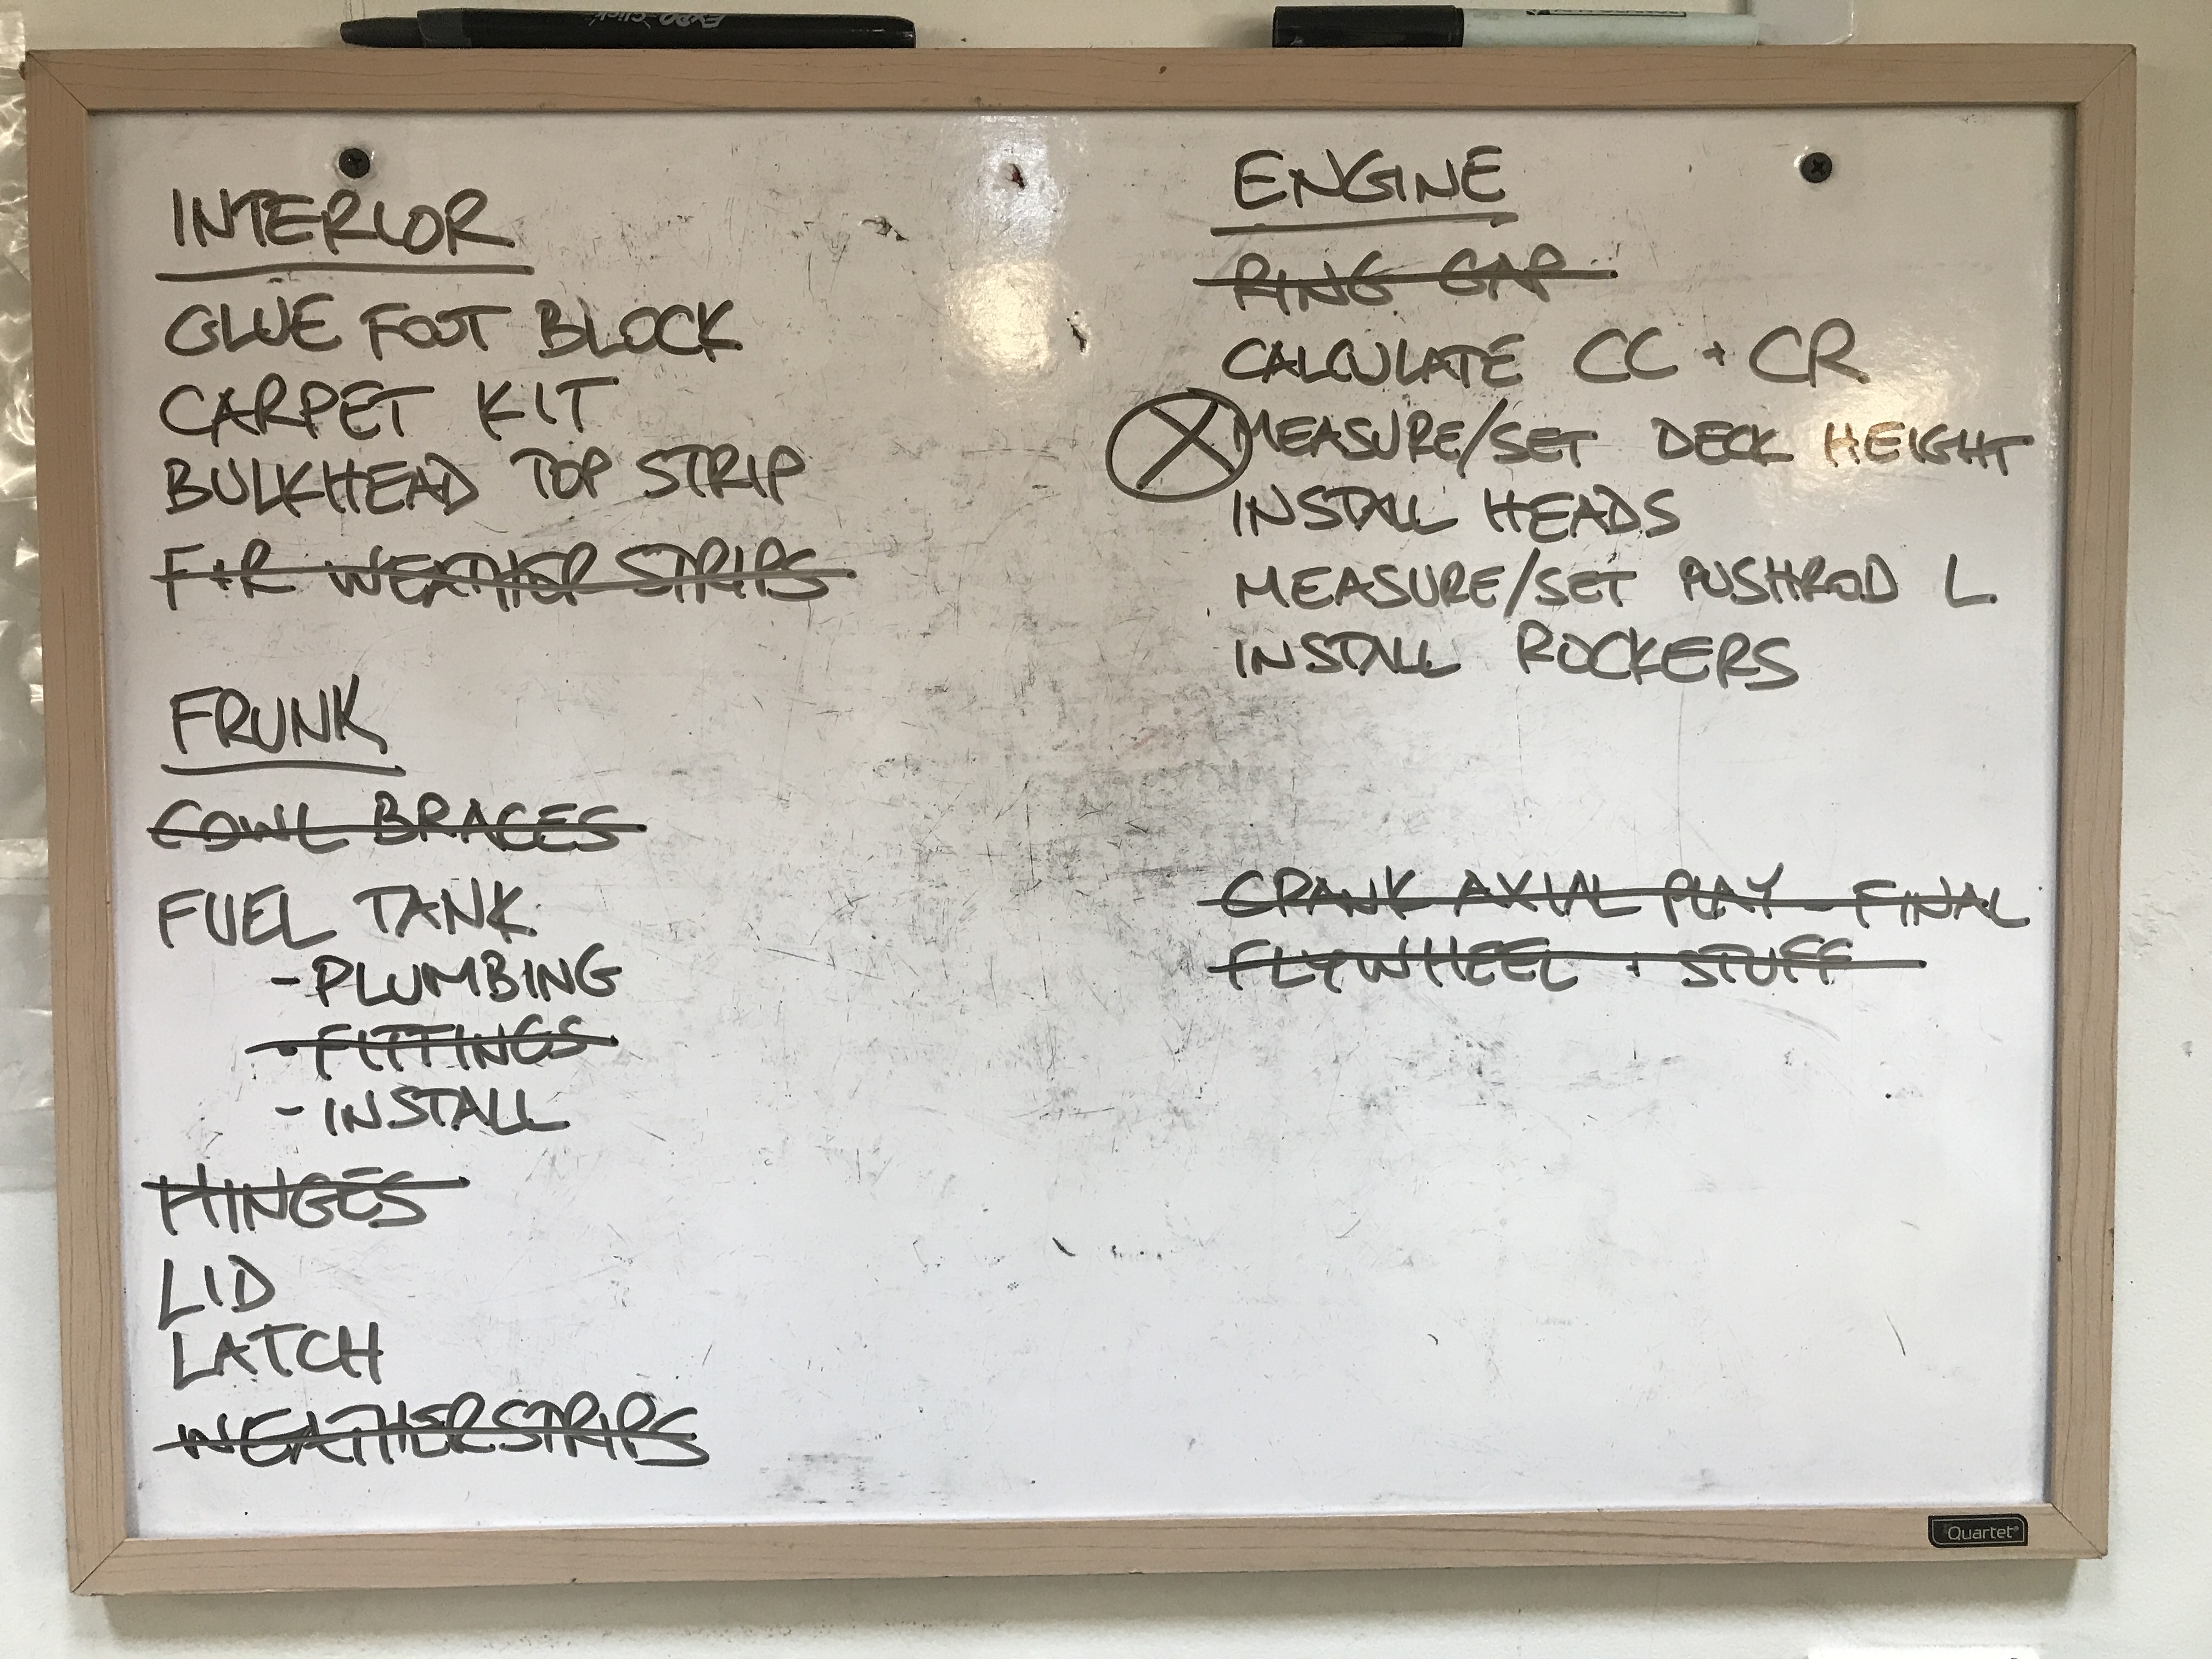 INTERIOR
GLUE FOOT BLOCK
CARPET KIT
BULKHEAD TOP STRIP
F+R WEATHER STRIPS
FRUNK
COWL BRACES
FUEL TANK
-PLUMBING
-FITTINGS
-INSTALL
HINGES
LID
LATCH
WEATHERSTRIPS
ENGINE
RING GAP
CALCULATE CC + CR
MEASURE/SET DECK HEIGHT
INSTALL HEADS
MEASURE/SET PUSHROD L
INSTALL ROCKERS
CRANK AXIAL PLAY - FINAL
FLYWHEEL + STUFF
Quartet
EXPO click